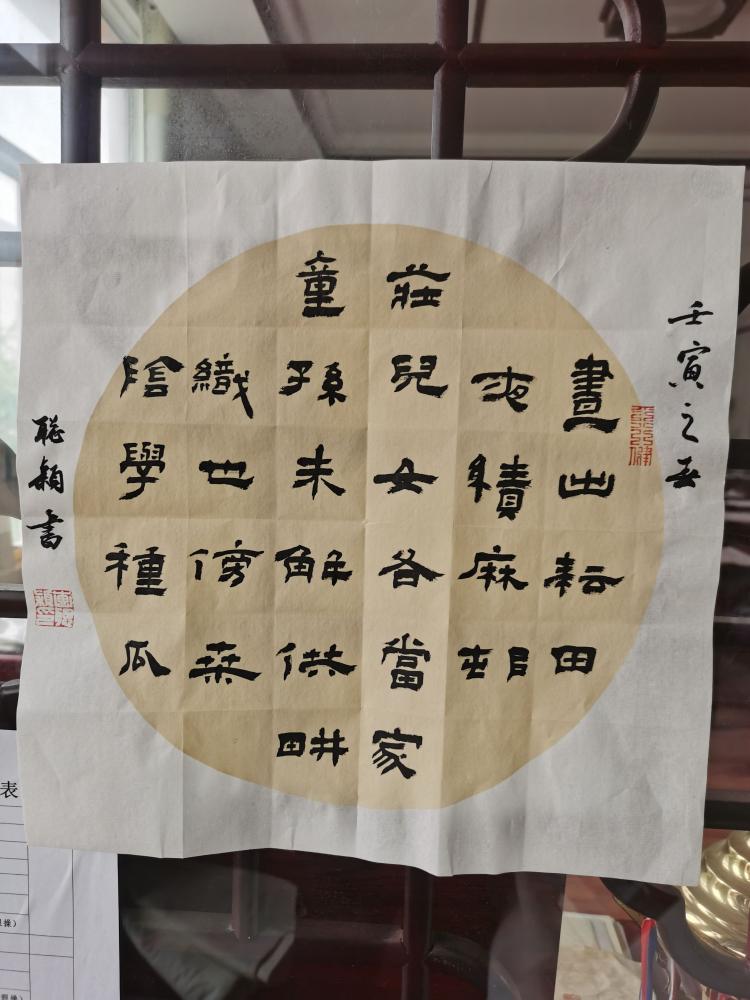 壬寅之春
晝出耘田
夜績麻邨
莊兒女各當家
童孫未解供畊
織也傍桒
陰學種瓜
聪穎書
表
操）